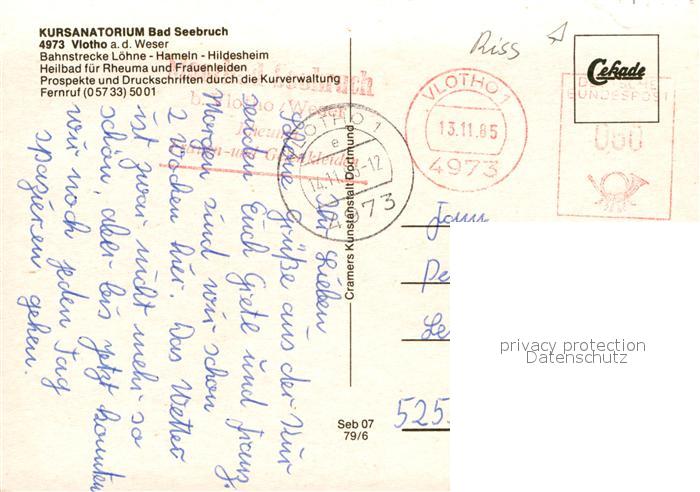 KURSANATORIUM Bad Seebruch
4973 Vlotho a. d. Weser
Bahnstrecke Löhne - Hameln - Hildesheim
Heilbad für Rheuma und Frauenleiden
Prospekte und Druckschriften durch die Kurverwaltung
Fernruf (0 57 33) 50 01
Riss
Cekade
Seebruch
b. Vlotho/Weser
VLOTHO 1
13.11.85
4973
DEUTSCHE
BUNDESPOST
060
VLOTHO 1
e
14.11. -12
4973
Ihr Lieben
Schöne Grüße aus der Kur
senden Euch Grete und Franz.
Morgen sind wir schon
2 Wochen hier. Das Wetter
ist zwar nicht mehr so
schön, aber bis jetzt konnten
wir noch jeden Tag
spazieren gehen.
Cramers Kunstanstalt Dortmund
Seb 07
79/6
Fam
525
privacy protection
Datenschutz